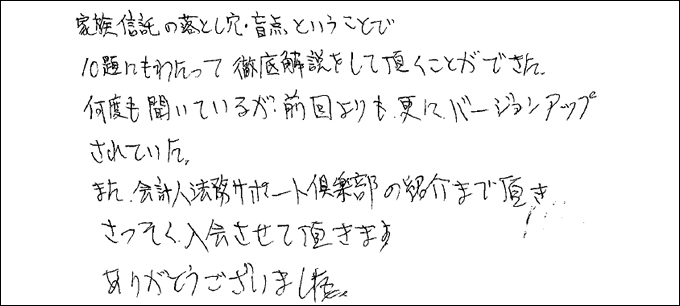 家族信託の落とし穴・盲点ということで
10題にもわたって徹底解説をして頂くことができた。
何度も聞いているが、前回よりも、更に、バージョンアップ
されていた。
また、会計人法務サポート倶楽部の紹介まで頂き、
さっそく、入会させて頂きます
ありがとうございました。